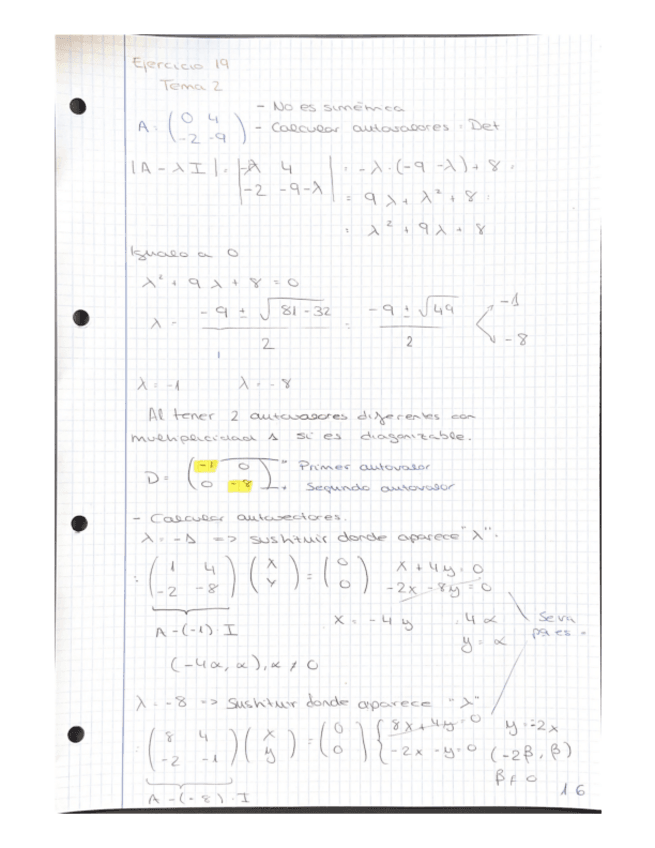 Ejercicio 19
Tema 2
A = ( 0 4 ; -2 -9 ) - No es simétrica
- Calcular autovalores = Det
|A - λI| = | -λ 4 ; -2 -9-λ | = -λ·(-9-λ) + 8 =
= 9λ + λ² + 8
= λ² + 9λ + 8
Igualo a 0
λ² + 9λ + 8 = 0
λ = (-9 ± √(81-32)) / 2 = (-9 ± √49) / 2 < -1 ; -8
λ = -1 λ = -8
Al tener 2 autovalores diferentes con
multiplicidad 1 si es diagonizable.
D = ( -1 0 ; 0 -8 ) Primer autovalor
Segundo autovalor
- Calcular autovectores.
λ = -1 => sustituir donde aparece "λ".
( 1 4 ; -2 -8 ) ( x ; y ) = ( 0 ; 0 ) x + 4y = 0
-2x - 8y = 0
A - (-1)·I x = -4y = 4α
y = α
Se va
(-4α, α), α ≠ 0
λ = -8 => Sustituir donde aparece "λ"
( 8 4 ; -2 -1 ) ( x ; y ) = ( 0 ; 0 ) { 8x + 4y = 0 y = -2x
-2x - y = 0 (-2β, β)
β ≠ 0
A - (-8)·I
16